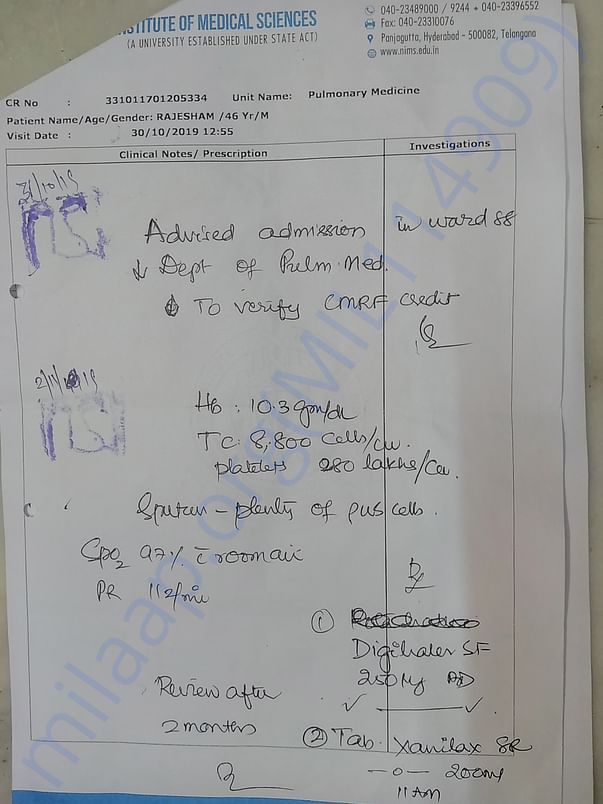 INSTITUTE OF MEDICAL SCIENCES
(A UNIVERSITY ESTABLISHED UNDER STATE ACT)
040-23489000 / 9244 + 040-23396552
Fax: 040-23310076
Panjagutta, Hyderabad - 500082, Telangana
www.nims.edu.in
CR No : 331011701205334 Unit Name: Pulmonary Medicine
Patient Name/Age/Gender: RAJESHAM /46 Yr/M
Visit Date : 30/10/2019 12:55
Clinical Notes/ Prescription Investigations
31/10/19
Advised admission in ward 88
Dept of Pulm. Med.
To verify CMRF credit
Hb : 10.3 gm/dl
TC : 8,800 cells/cu.
platelets 280 lakhs/cu.
Sputum - plenty of pus cells.
SpO2 97% c room air
PR 112/min
Rx
①
Digihaler SF
250 µg BD
Review after
2 months
② Tab. Xanilax SR
—o— 200mg
11 AM
milaap.org(MIL114909)